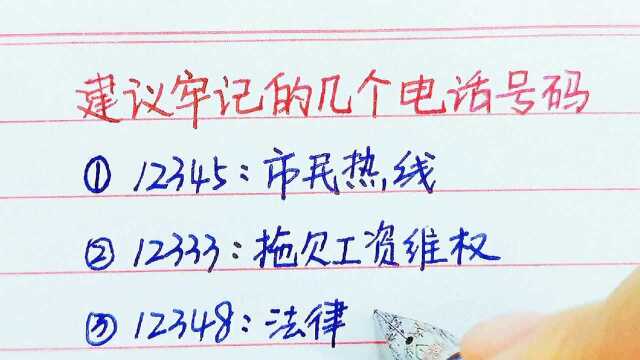 建议牢记的几个电话号码
① 12345：市民热线
② 12333：拖欠工资维权
③ 12348：法律